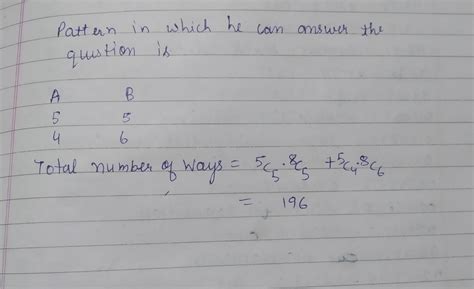 Pattern in which he can answer the
question is
A B
5 5
4 6
Total number of ways = 5C5 . 8C5 + 5C4 . 8C6
= 196